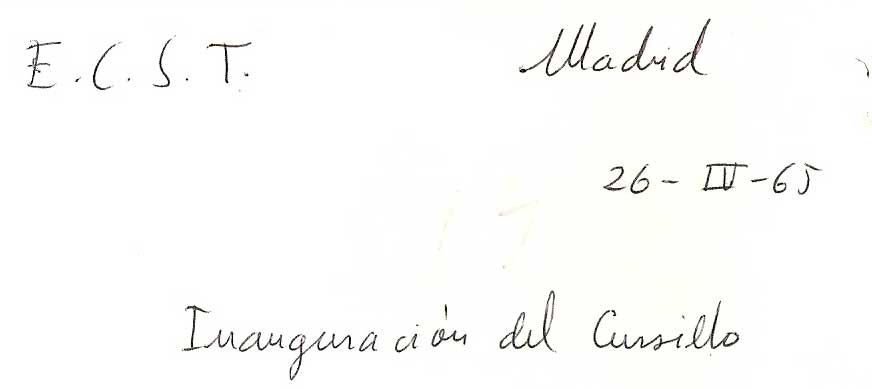 E.C.S.T. Madrid
26-IV-65
Inauguración del Cursillo